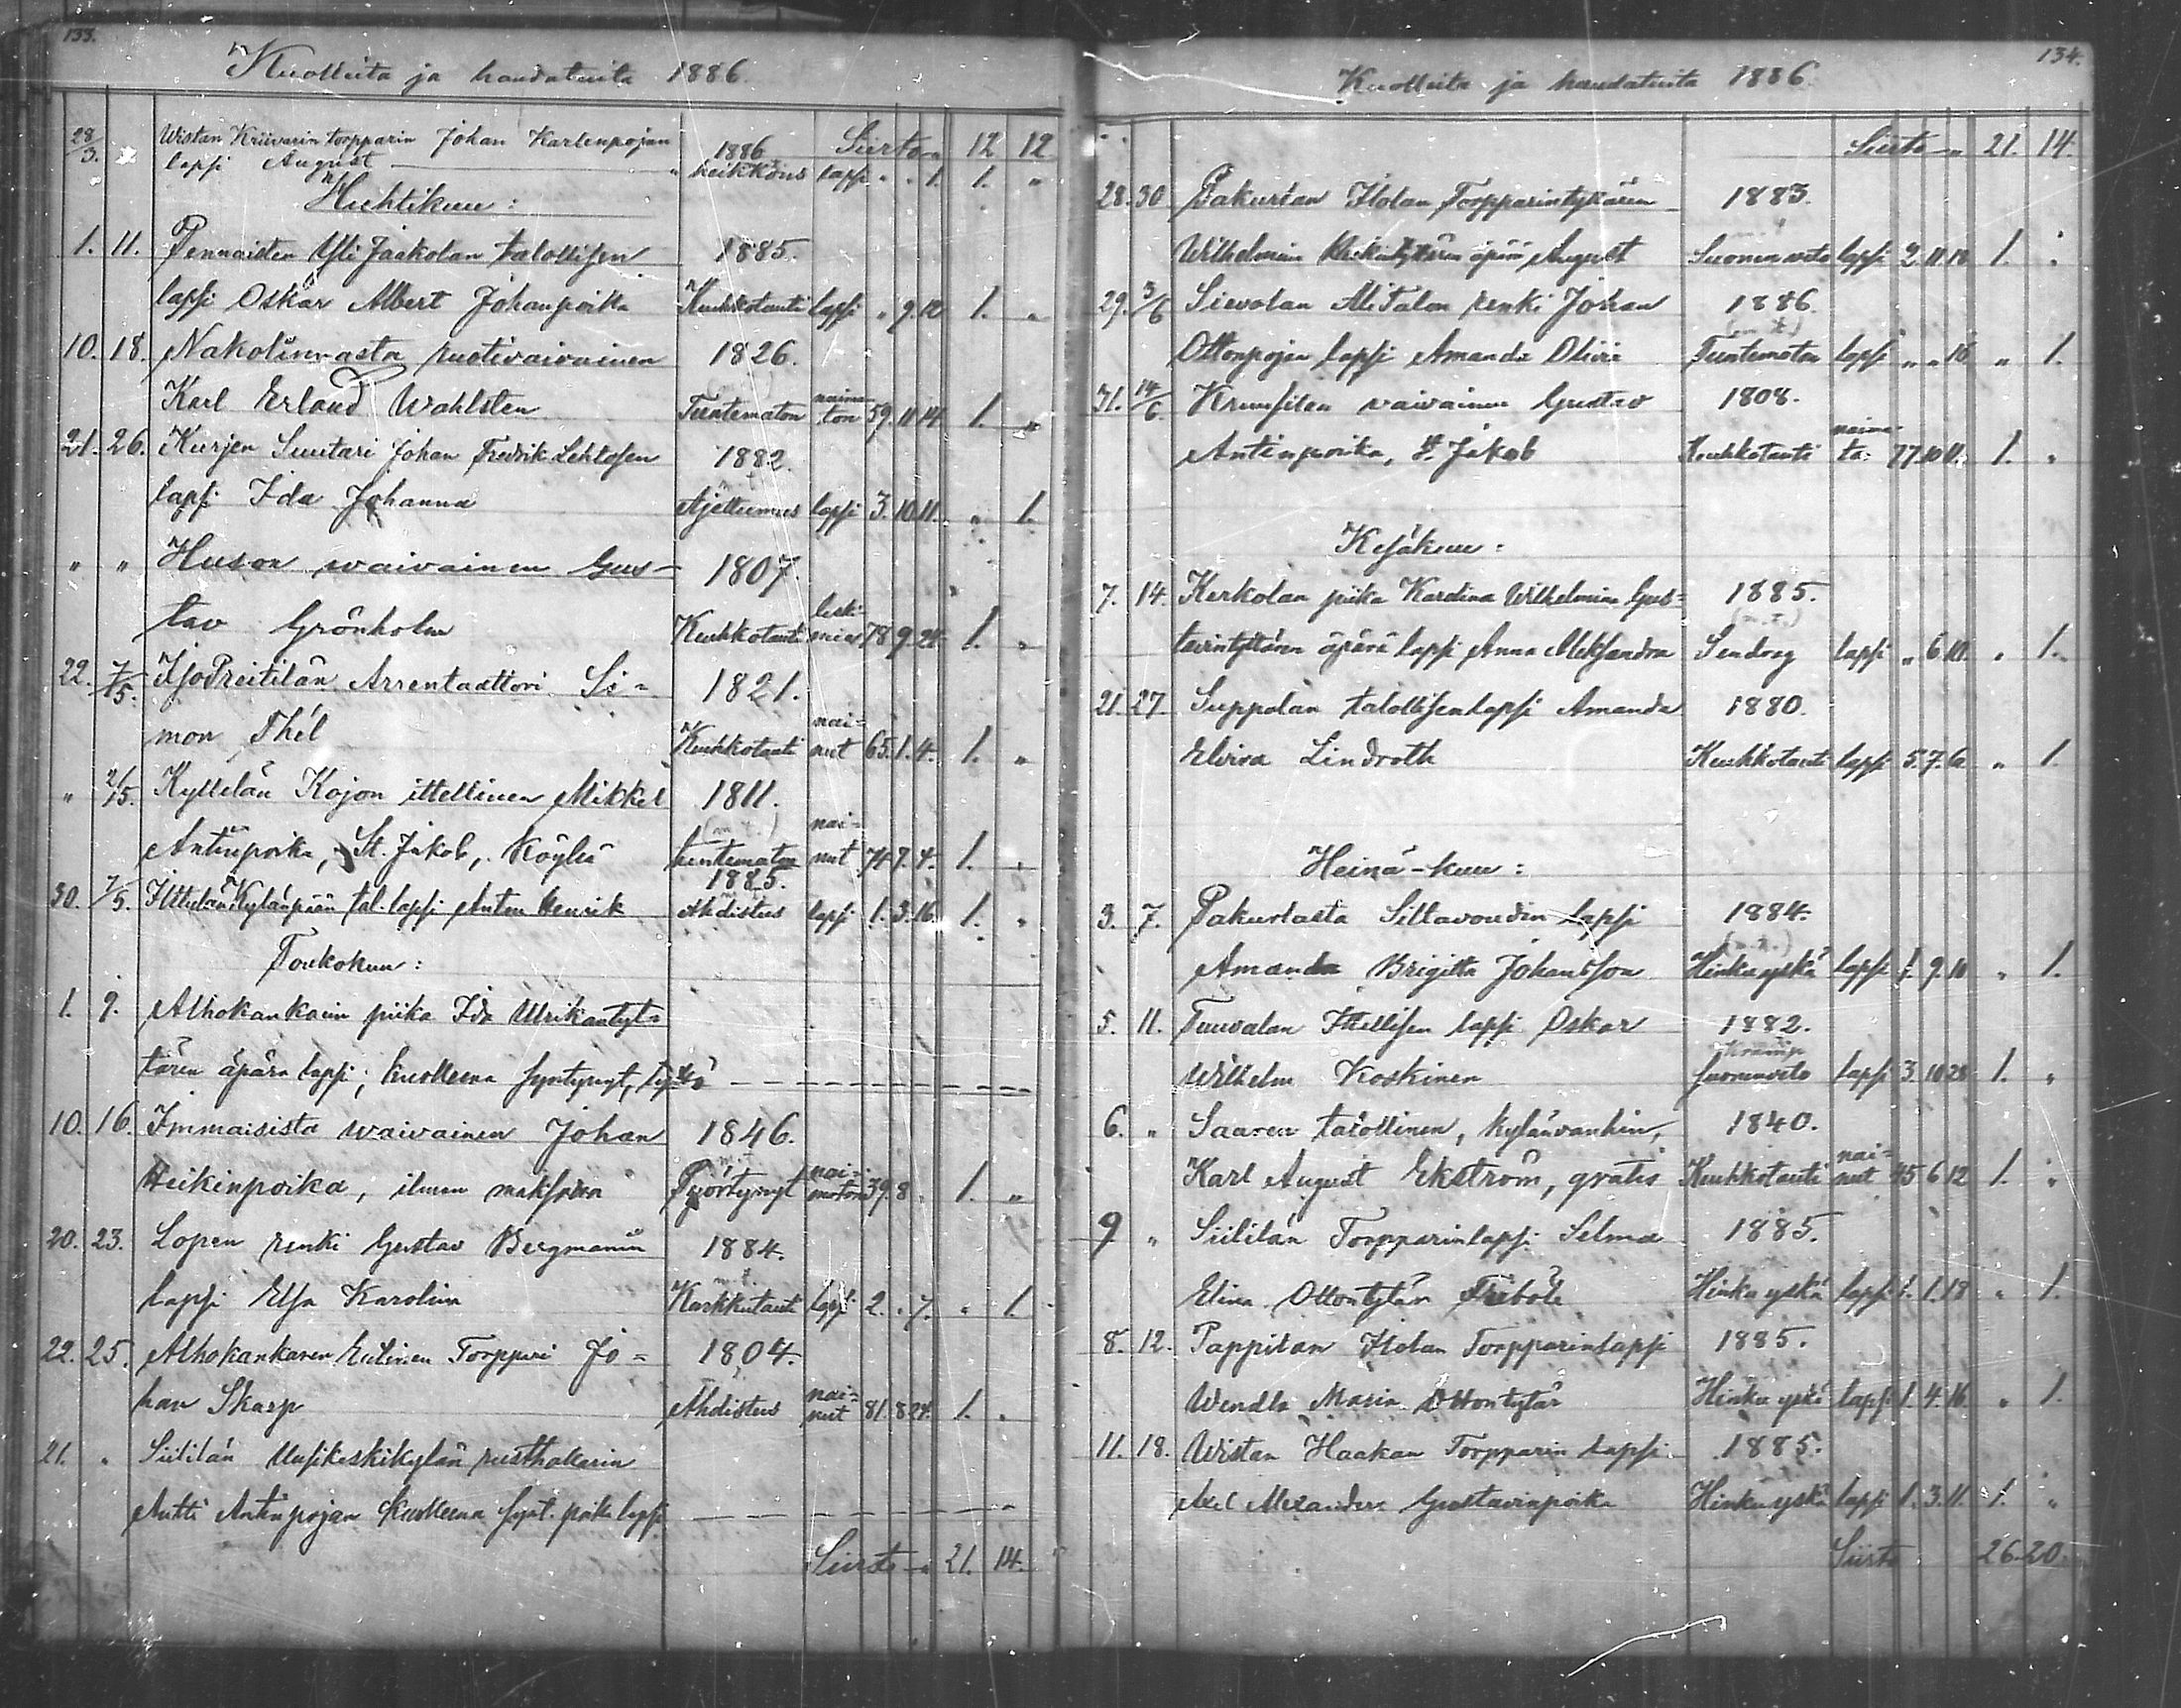 133.
Kuolleita ja haudatuita 1886.
28/3. Wistan Kriivarin torpparin Johan Karlenpojan 1886 Siirto " 12 12
lapsi August " heikkous lapsi " " 1. 1. "
Huhtikuu:
1. 11. Pennaisten Yli Jaakolan talollisen 1885.
lapsi Oskar Albert Johanpoika Keuhkotauti lapsi " 9. 12 1. "
10. 18. Nakolinnasta ruotivaivainen 1826.
Karl Erland Wahlsten Tuntematon naimaton 59. 11 14 1. "
21. 26. Kurjen Suutari Johan Fredrik Lehtosen 1882.
lapsi Ida Johanna Ajettumus lapsi 3. 10. 11. " 1.
" " Huson waivainen Gus- 1807
tav Grönholm Keuhkotauti leskimies 78 9. 24. 1. "
22. 7/5. Iso Preitilän Arrentaattori Si- 1821.
mon Thèl Keuhkotauti nai-nut 65. 1. 4. 1. "
" 2/5. Kyllilän Kojon ittellinen Mikkel 1811.
Antinpoika, St. Jakob, Köyliö tuntematon nai-nut 74. 7. 4. 1. "
30. 7/5. Kylänpään tal. lapsi Anton Henrik 1885. Ahdistus lapsi 1. 3. 16. 1. "
Toukokuu:
1. 9. Alhokankaan piika Ida Ulrikantyt-
tären äpärä lapsi; kuolleena syntynyt, tyttö
10. 16. Immaisista waivainen Johan 1846.
Heikinpoika, ilman maksua nai-matoin 39. 8 " 1. "
20. 23. Lopen renki Gustav Bergmanin 1884.
lapsi Elsa Karolina Kurkkutauti lapsi 2. " 7. " 1.
22. 25. Alhokankaren Torppari Jo- 1804.
han Skarp Ahdistus nai-nut 81. 8 24. 1. "
21. " Siililän Uusikeskikylän rusthollarin
Antti Antinpojan kuolleena synt. poika lapsi
Siirto " 21. 14.
134.
Kuolleita ja haudatuita 1886.
Siirto " 21. 14.
28. 30 Pakurlan Ilolan Torpparintyttären 1883.
Wilhelmina äpärä August Suonenveto lapsi 2. 11 18 1. "
29. 3/6 Sievolan AliTalon renki Johan 1886.
Ottonpojan lapsi Amanda Olivia Tuntematon lapsi " " 16 " 1.
31. 14/6. waivainen Gustav 1808.
Antinpoika, St. Jakob Keuhkotauti naima-ta. 77. 10 11. 1. "
Kesäkuu:
7. 14. Kerkolan piika Karolina Wilhelmina Gus- 1885.
tavintyttären äpärä lapsi Anna Aleksandra lapsi " 6. 10. " 1.
21. 27. Suppolan talollisen lapsi Amanda 1880.
Elvira Lindroth Keuhkotauti lapsi 5. 7. 6. " 1.
Heinä-kuu:
3. 7. Pakurlasta Siltavoudin lapsi 1884.
Amanda Brigitta Johansson Hinkuyskä lapsi 1. 9. 10 " 1.
5. 11. Tuuvalan Ittellisen lapsi Oskar 1882.
Wilhelm Koskinen Suonenveto lapsi 3. 10 28 1. "
6. " Saaren talollinen, kylänvanhin, 1840.
Karl August Ekström, gratis Keuhkotauti nai-nut 45 6 12 1. "
9 " Siililän Torpparinlapsi Selma 1885.
Elina Ottontytär Hinkuyskä lapsi 1. 1. 18 " 1.
8. 12. Pappilan Ilolan Torpparinlapsi 1885.
Wendla Maria Ottontytär Hinkuyskä lapsi 1. 4. 16. " 1.
11. 18. Wistan Haakan Torpparin lapsi 1885.
Axel Alexander Gustavinpoika Hinkuyskä lapsi 1. 3. 11. 1. "
Siirto 26. 20.